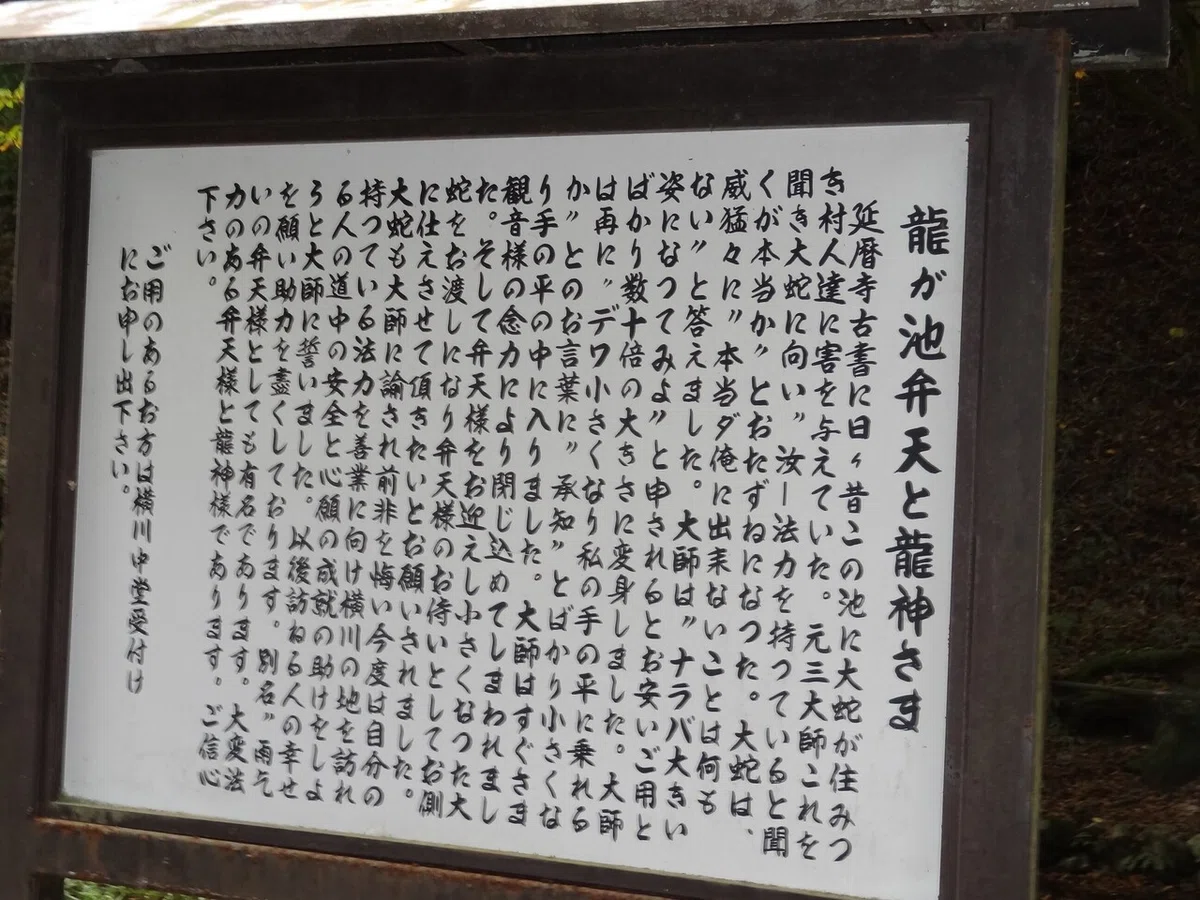 龍が池弁天と龍神さま
延暦寺古書に曰々昔この池に大蛇が住みつ
き村人達に害を与えていた。元三大師これを
聞き大蛇に向い〃汝ー法力を持つていると聞
くが本当か〃とおたずねになつた。大蛇は、
威猛々に〃本当ダ俺に出来ないことは何も
ない〃と答えました。大師は〃ナラバ大きい
姿になつてみよ〃と申されるとお安いご用と
ばかり数十倍の大きさに変身しました。大師
は再に〃デワ小さくなり私の手の平に乗れる
か〃とのお言葉に〃承知〃とばかり小さくな
り手の平の中に入りました。大師はすぐさま
観音様の念力により閉じ込めてしまわれまし
た。そして弁天様をお迎えし小さくなつた大
蛇をお渡しになり弁天様のお侍いとしてお側
に仕えさせて頂きたいとお願いされました。
大蛇も大師に諭され前非を悔い今度は自分の
持つている法力を善業に向け横川の地を訪れ
る人の道中の安全と心願の成就の助けをしよ
うと大師に誓いました。以後訪ねる人の幸せ
を願い助力を盡くしております。別名〃雨乞
いの弁天様としても有名であります。大変法
力のある弁天様と龍神様であります。ご信心
下さい。
ご用のあるお方は横川中堂受付け
にお申し出下さい。